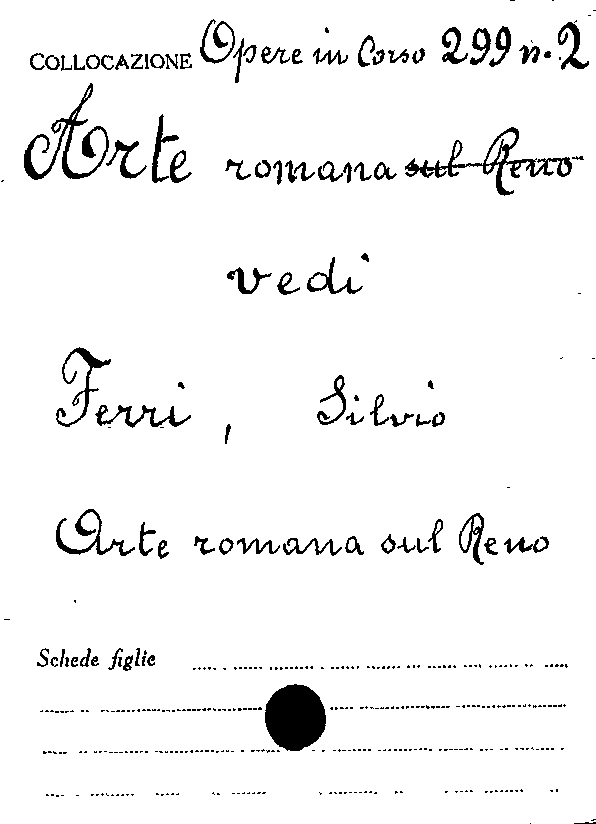 COLLOCAZIONE Opere in Corso 299 n. 2
Arte romana sul Reno
vedi
Ferri, Silvio
Arte romana sul Reno
Schede figlie